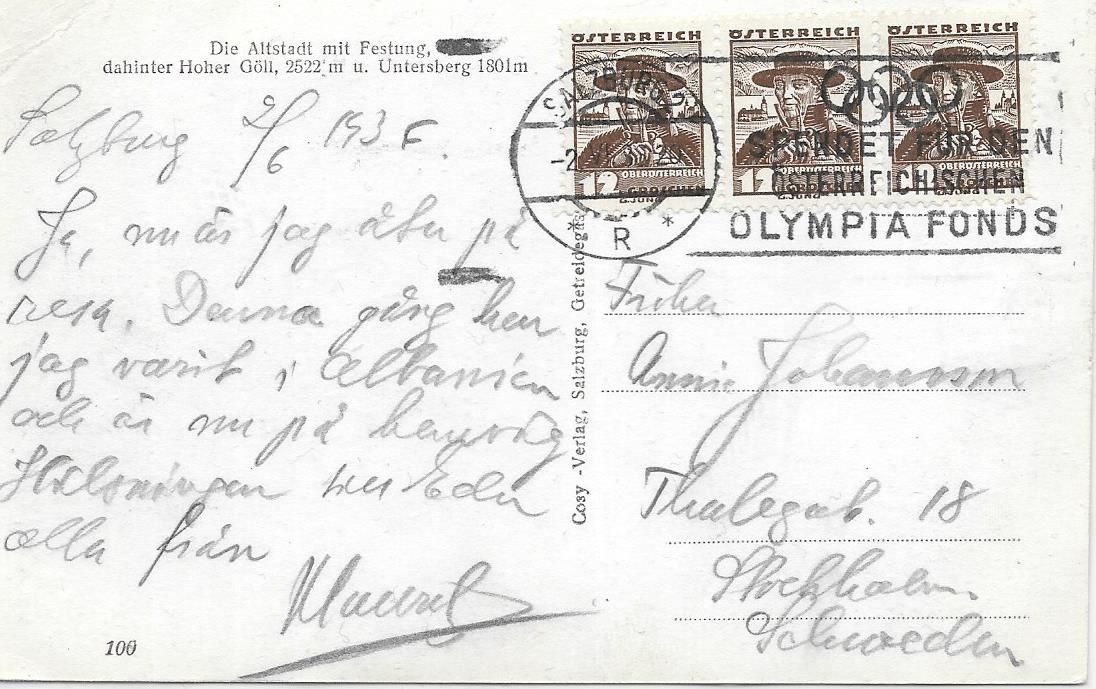 Die Altstadt mit Festung,
dahinter Hoher Göll, 2522 m u. Untersberg 1801m
Salzburg 2/6 193
Ja, nu är jag åter på
resa. Denna gång har
jag varit i Albanien
och är nu på hemväg
Hälsningar till Eder
alla från
100
Cosy -Verlag, Salzburg, Getreidegas
ÖSTERREICH
ÖSTERREICH
ÖSTERREICH
12 GROSCHEN
OBERÖSTERREICH
12
OBERÖSTERREICH
SALZBURG 2
R
SPENDET FÜR DEN
ÖSTERREICHISCHEN
OLYMPIA FONDS
Annie Johansson
18
Stockholm
Schweden